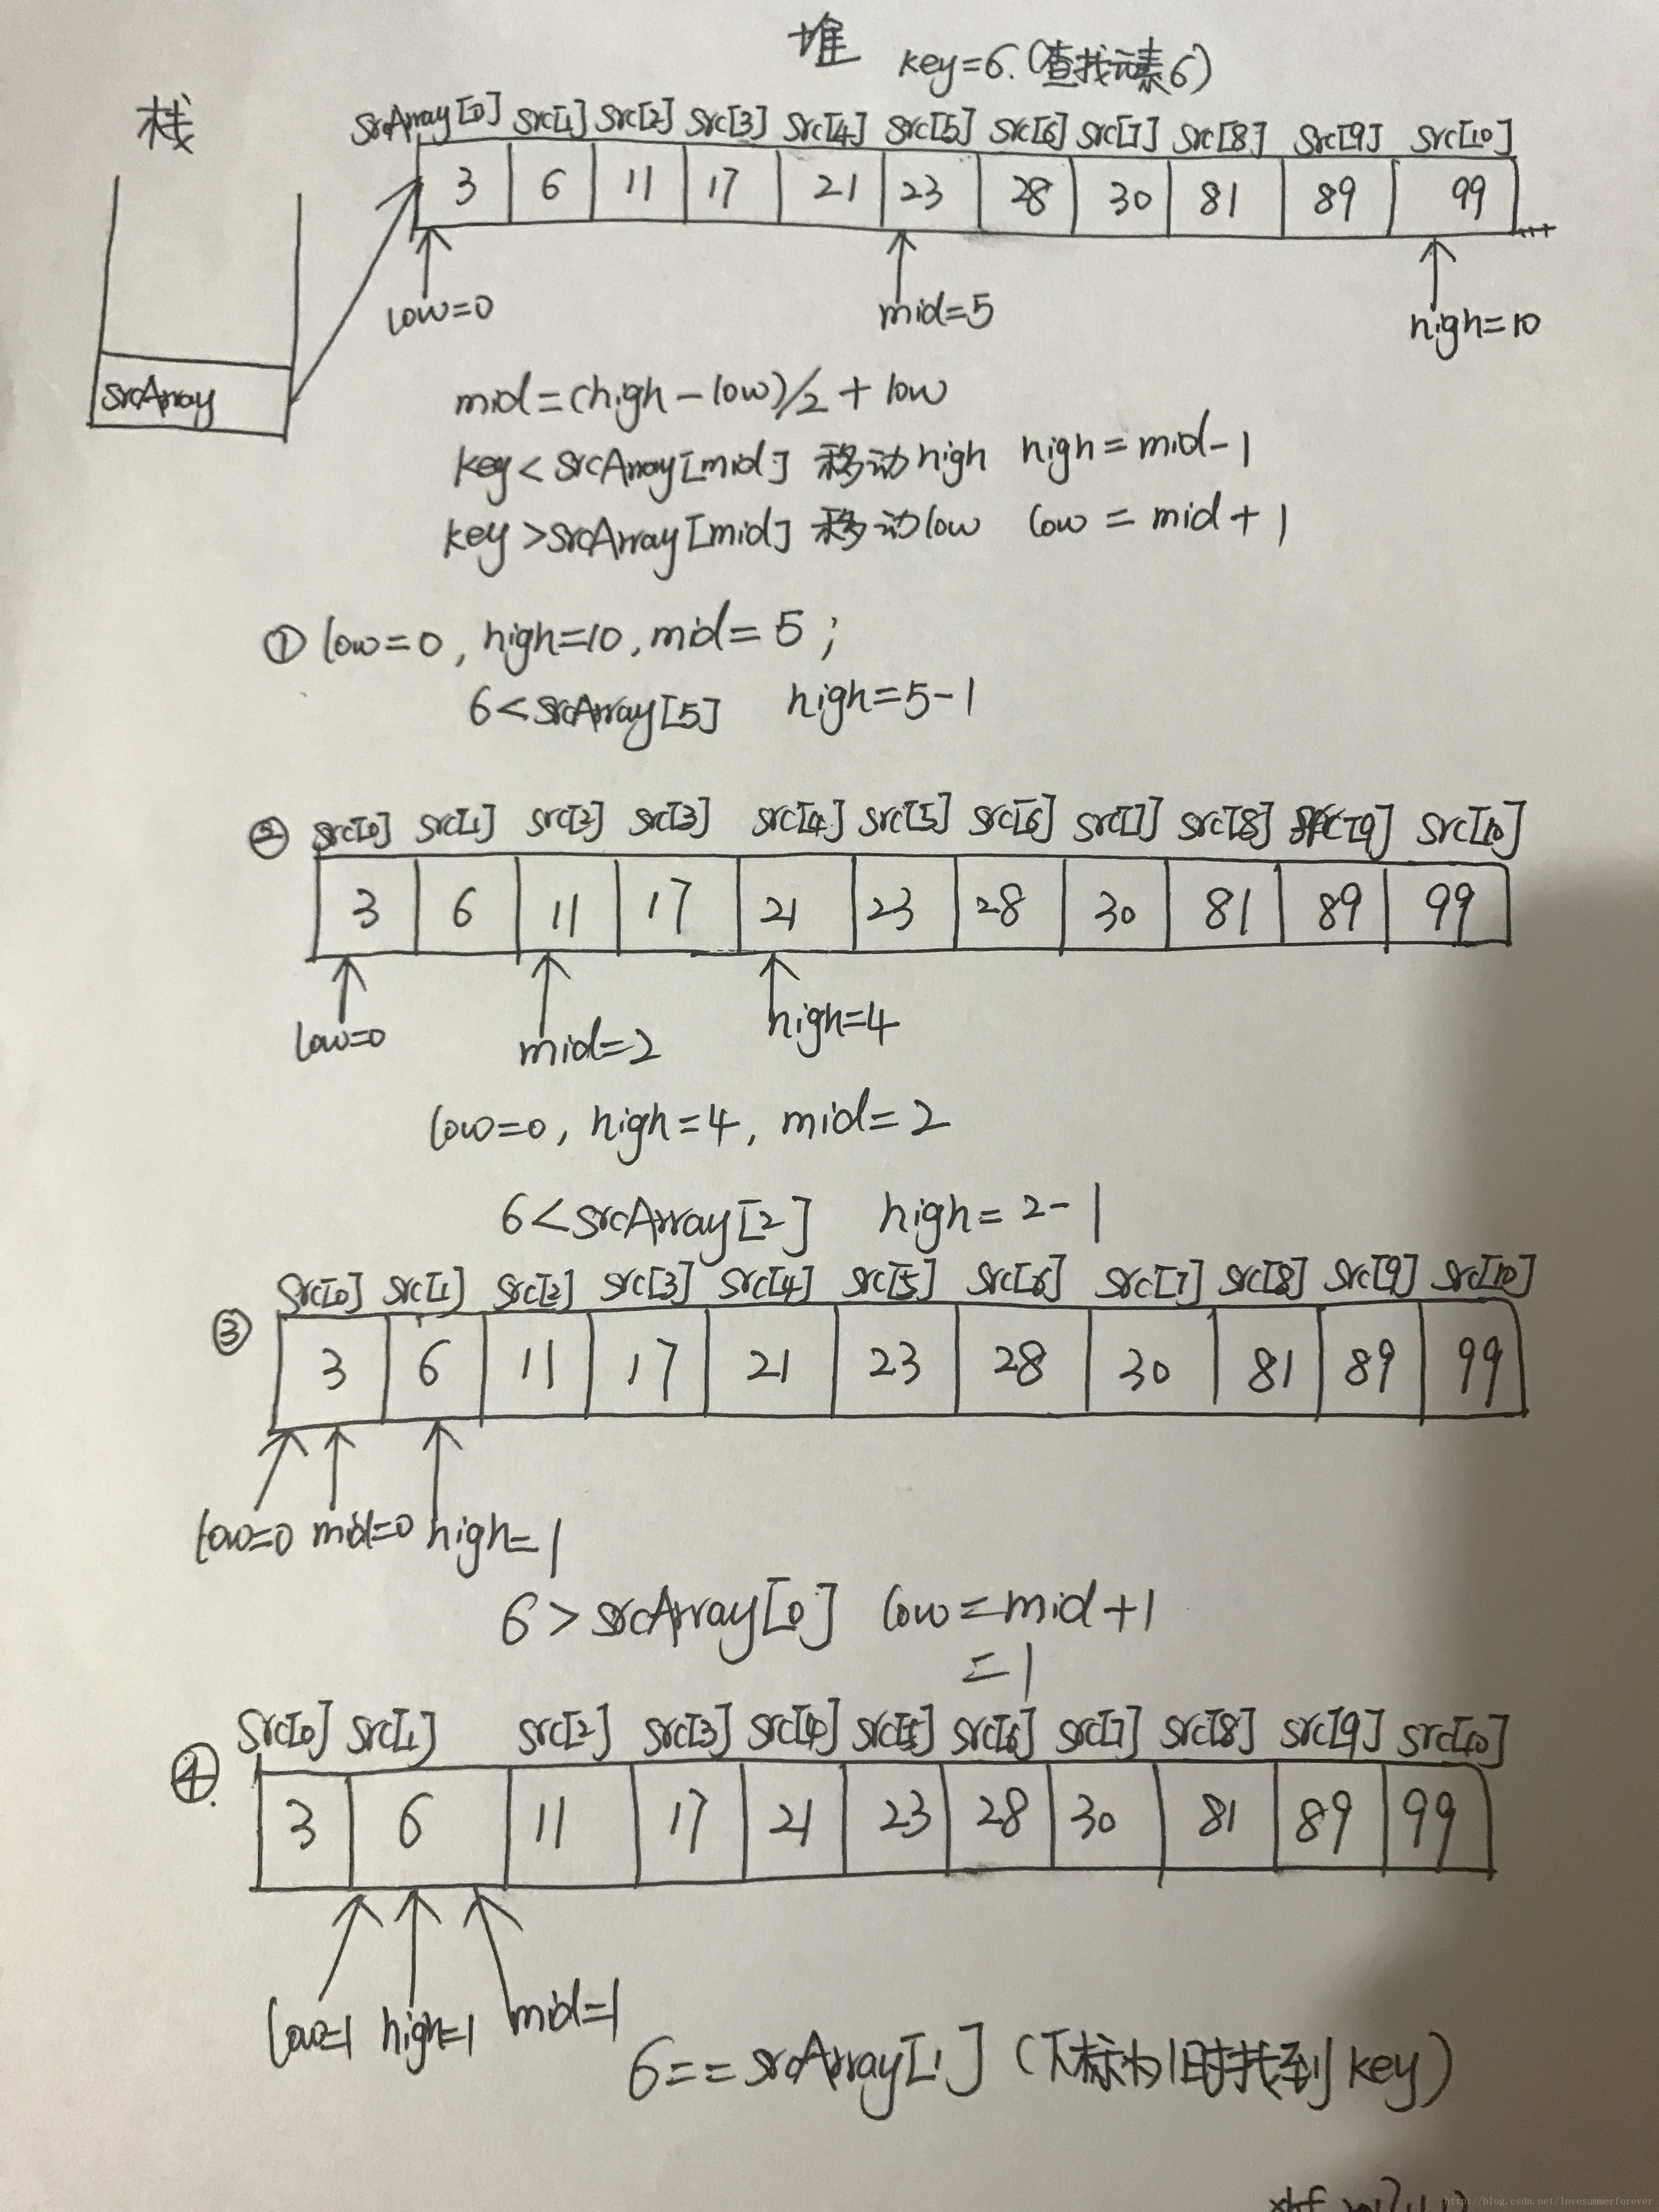 堆 key=6.(查找元素6)
栈
srcArray[0] src[1] src[2] src[3] src[4] src[5] src[6] src[7] src[8] src[9] src[10]
3 6 11 17 21 23 28 30 81 89 99 ...
low=0 mid=5 high=10
srcArray
mid=(high-low)/2+low
key<srcArray[mid] 移动high high=mid-1
key>srcArray[mid] 移动low low=mid+1
① low=0, high=10, mid=5;
6<srcArray[5] high=5-1
② src[0] src[1] src[2] src[3] src[4] src[5] src[6] src[7] src[8] src[9] src[10]
3 6 11 17 21 23 28 30 81 89 99
low=0 mid=2 high=4
low=0, high=4, mid=2
6<srcArray[2] high=2-1
src[0] src[1] src[2] src[3] src[4] src[5] src[6] src[7] src[8] src[9] src[10]
③ 3 6 11 17 21 23 28 30 81 89 99
low=0 mid=0 high=1
6>srcArray[0] low=mid+1
=1
src[0] src[1] src[2] src[3] src[4] src[5] src[6] src[7] src[8] src[9] src[10]
④. 3 6 11 17 21 23 28 30 81 89 99
low=1 high=1 mid=1
6==srcArray[1] (下标为1时找到key)
http://blog.csdn.net/lovesummerforever